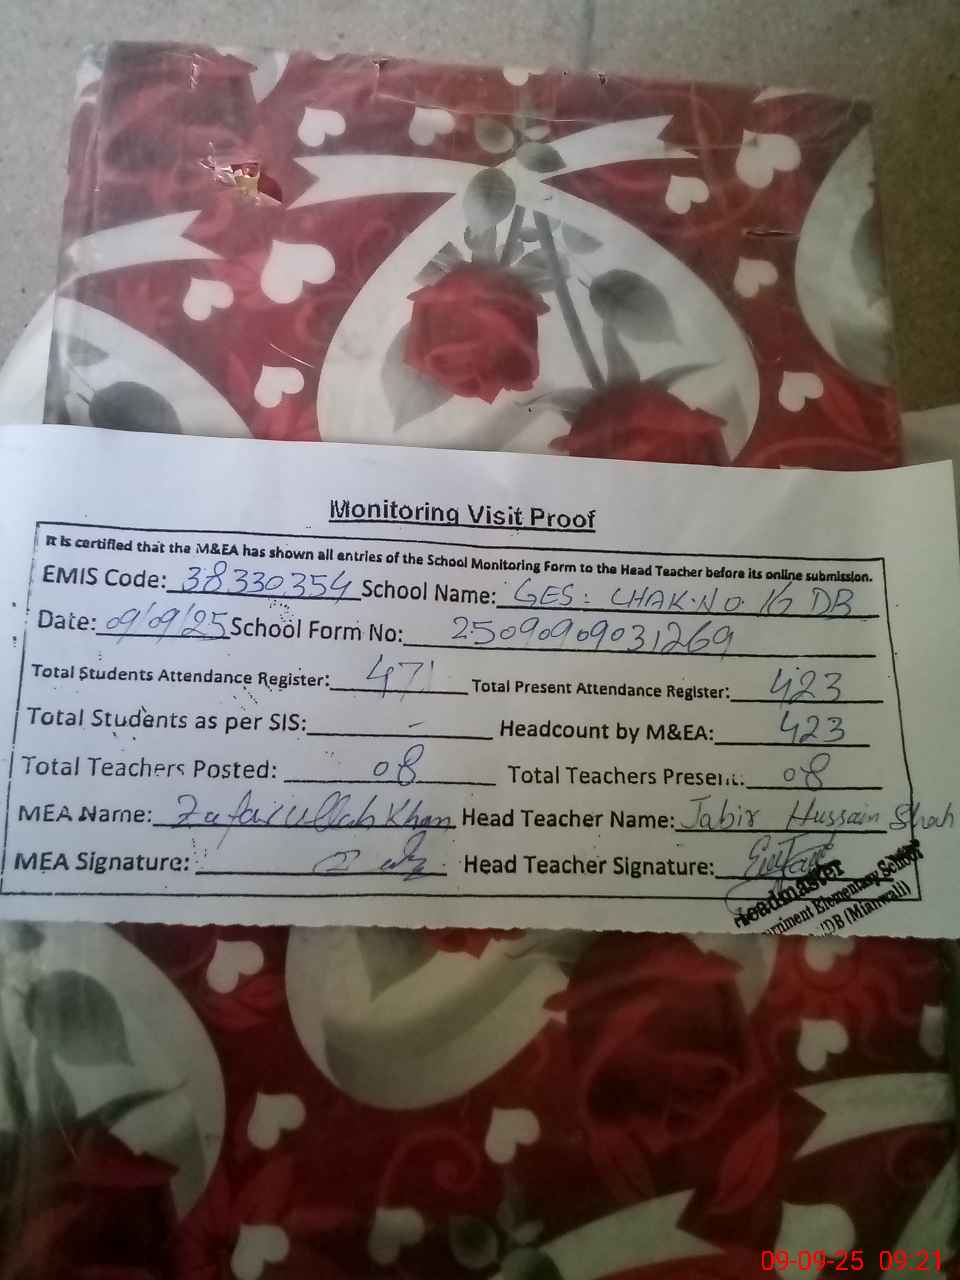 Monitoring Visit Proof
It is certified that the M&EA has shown all entries of the School Monitoring Form to the Head Teacher before its online submission.
EMIS Code: 38330354 School Name: GES: CHAK.NO. DB
Date: 09/09/25 School Form No: 2509090931269
Total Students Attendance Register: 471 Total Present Attendance Register: 423
Total Students as per SIS: - Headcount by M&EA: 423
Total Teachers Posted: 08 Total Teachers Present: 08
MEA Name: Zafarullah Khan Head Teacher Name: Jabir Hussain Shah
MEA Signature: Head Teacher Signature:
Headmaster
Government Elementary School
/DB (Mianwali)
09-09-25 09:21